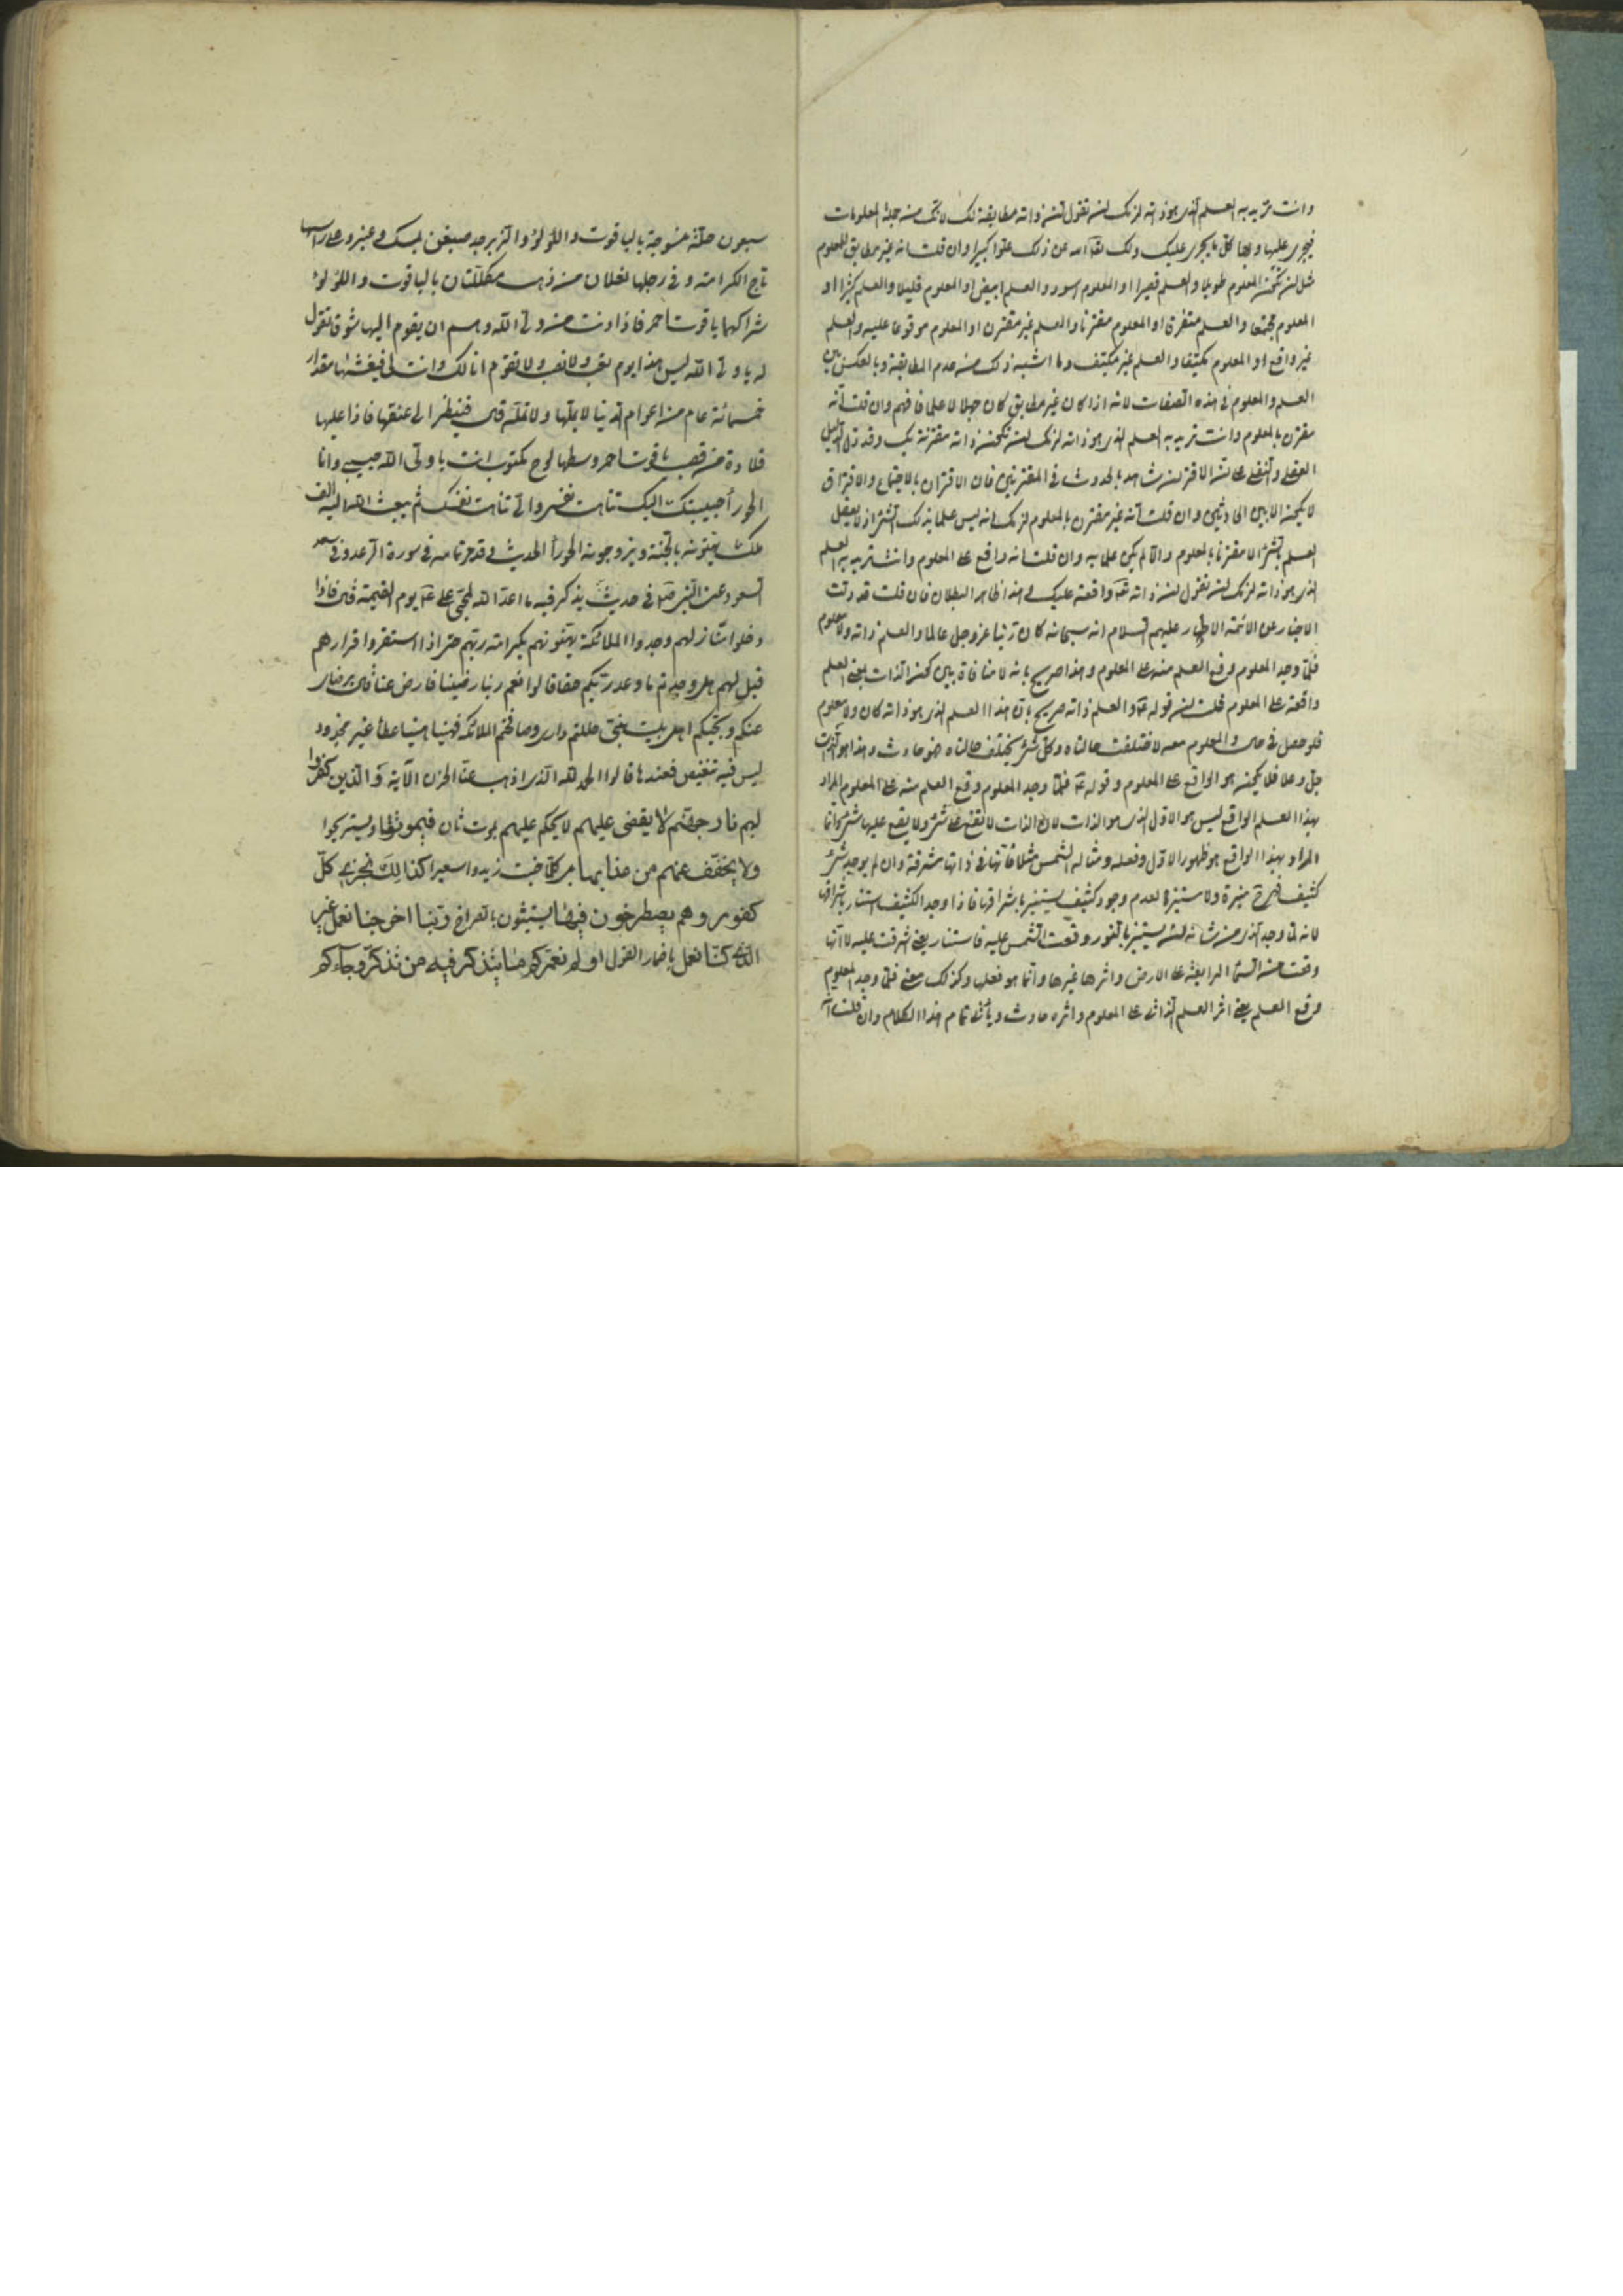 وانت تريد به العلم الذي هو ذاته لزمك ان تقول ان ذاته مطابقة لك لانك من جملة المعلومات
فيجري عليها وبها كل ما يجري عليك ولك تعالى الله عن ذلك علوا كبيرا وان قلت انه غير مطابق للمعلوم
مثل ان يكون المعلوم طويلا والعلم قصيرا او المعلوم اسود والعلم ابيض او المعلوم قليلا والعلم كثيرا او
المعلوم مجتمعا والعلم متفرق او المعلوم مقترنا والعلم غير مقترن او المعلوم موقوعا عليه والعلم
غير واقع او المعلوم مكيفا والعلم غير مكيف وما اشبه ذلك من عدم المطابقة وبالعكس بين
العلم والمعلوم في هذه الصفات لانه اذا كان غير مطابق كان جهلا لا علما فافهم وان قلت انه
مقترن بالمعلوم وانت تريد به العلم الذي هو ذاته لزمك ان تكون ذاته مقترنة بك وقد دل الدليل
العقلي والنقلي على ان الاقتران شاهد بالحدوث في المقترنين فان الاقتران بالاجتماع والافتراق
لا يكون الا بين الحادثين وان قلت انه غير مقترن بالمعلوم لزمك انه ليس علما بذلك الشيء اذ لا يعقل
العلم بالشيء الا مقترنا بالمعلوم والا لم يكن علما به وان قلت انه واقع على المعلوم وانت تريد به العلم
الذي هو ذاته لزمك ان تقول ان ذاته تعالى واقعة عليك وهذا ظاهر البطلان فان قلت قد دلت
الاخبار عن الائمة الاطهار عليهم السلام انه سبحانه كان ربنا عز وجل عالما والعلم ذاته ولا معلوم
فلما وجد المعلوم وقع العلم منه على المعلوم وهذا صريح بانه لا منافاة بين كون الذات يعني العلم
واقعة على المعلوم قلت ان قوله ع والعلم ذاته صريح بان هذا العلم الذي هو ذاته كان ولا معلوم
فلو حصل في حال والمعلوم معه لاختلفت حالتاه وكل شيء يختلف حالتاه فهو حادث وهذا هو الذات
جل وعلا فلا يكون هو الواقع على المعلوم وقوله ع فلما وجد المعلوم وقع العلم منه على المعلوم المراد
بهذا العلم الواقع ليس هو الاول الذي هو الذات لان الذات لا تقع على شيء ولا يقع عليها شيء وانما
المراد بهذا الواقع هو ظهور الاول وفعله ومثاله الشمس مثلا فانها في ذاتها مشرقة وان لم يوجد شيء
كثيف منيرة ولا مستنيرة لعدم وجود كثيف يستنير باشراقها فاذا وجد الكثيف استنار باشراقها
لانه لما وجد الذي من شانه ان يستنير بالنور وقعت الشمس عليه فاستنار يعني اشرقت عليه لا انها
وقعت من السماء الرابعة على الارض واثرها غيرها وانما هو فعلها وكذلك معنى فلما وجد المعلوم
وقع العلم يعني اثر العلم الذاتي على المعلوم واثره حادث وياتي تمام هذا الكلام وان قلت انه
سبعون حلة منسوجة بالياقوت واللؤلؤ والزبرجد صبغن بمسك وعنبر وعلى راسها
تاج الكرامة وفي رجلها نعلان من ذهب مكللتان بالياقوت واللؤلؤ
شراكهما ياقوت احمر فاذا دنت من ولي الله وهم ان يقوم اليها شوقا تقول
له يا ولي الله ليس هذا يوم تعب ولا نصب ولا تقوم انا لك وانت لي فيغشيها مقدار
خمسمائة عام من اعوام الدنيا لا يملها ولا تمله قال فينظر الى عنقها فاذا عليها
قلادة من قصب ياقوت احمر وسطها لوح مكتوب انت يا ولي الله حبيبي وانا
الحوراء حبيبتك اليك تناهت نفسي والي تناهت نفسك ثم يبعث الله اليه الف
ملك يهنونه بالجنة ويزوجونه الحوراء الحديث وقد مر تمامه في سورة الرعد وفي سعد
السعود عن النبي ص في حديث يذكر فيه ما اعد الله لمحبي علي ع يوم القيمة قال فاذا
دخلوا منازلهم وجدوا الملائكة يهنونهم بكرامة ربهم حتى اذا استقروا قرارهم
قيل لهم هل وجدتم ما وعد ربكم حقا قالوا نعم ربنا رضينا فارض عنا قال برضاي
عنكم وبحبكم اهل بيت نبيي حللتم داري وصافحتم الملائكة فهنيئا هنيئا عطاء غير مجذوذ
ليس فيه تنغيص فعندها قالوا الحمد لله الذي اذهب عنا الحزن الآية وَالذين كفروا
لهم نار جهنم لا يقضى عليهم لا يحكم عليهم بموت ثان فيموتوا ويستريحوا
ولا يخفف عنهم من عذابها بل كلما خبت زيدوا سعيرا كذالك نجزي كل
كفور وهم يصطرخون فيها يستغيثون بالصراخ ربنا اخرجنا نعمل غير
الذي كنا نعمل باضمار القول اولم نعمركم ما يتذكر فيه من تذكر وجاءكم